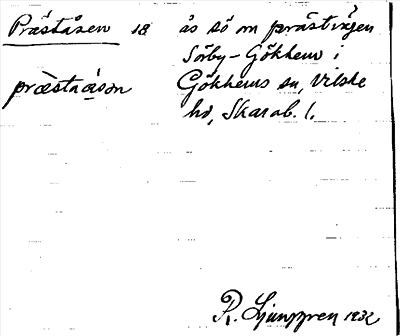 Präståsen 18 ås sö om prästvägen
Sörby-Gökhem i
præstaåsən Gökhems sn, Vilske
hd, Skarab. l.
R. Ljunggren 1932